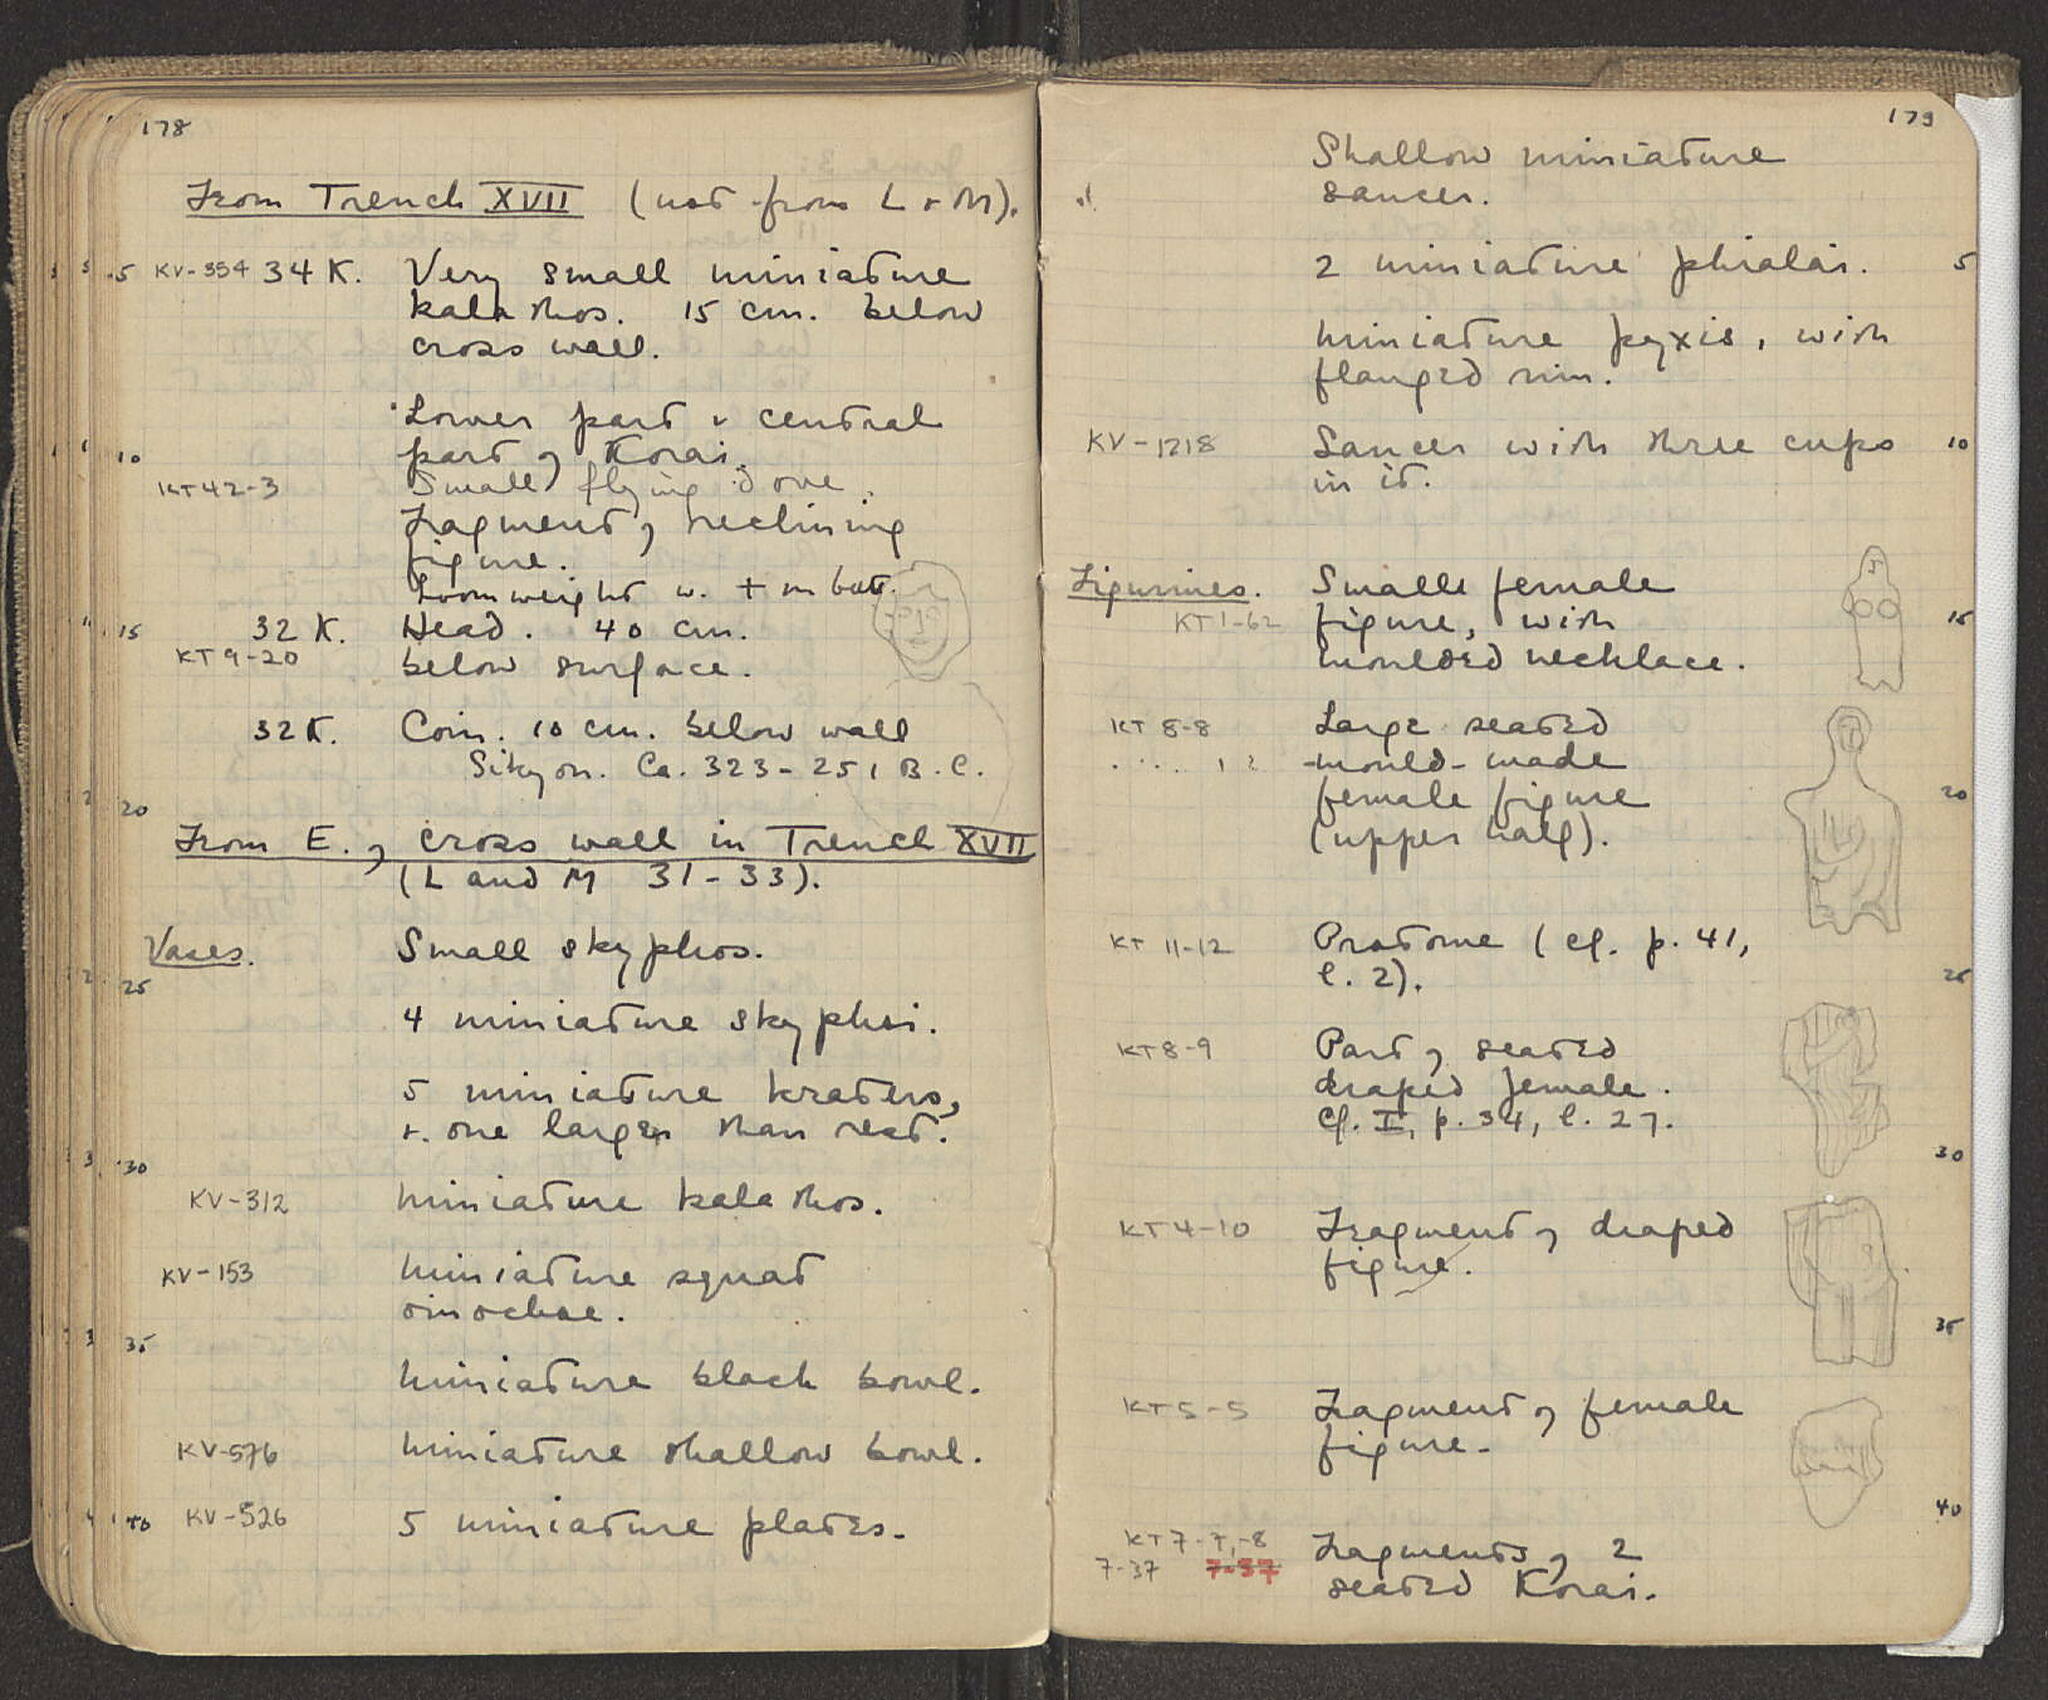 178
From Trench XVII (not from L + M).
5 KV-354 34 K. Very small miniature
kalathos. 15 cm. below
cross wall.
Lower part & central
10 part of Korai.
KT 42-3 Small flying dove.
Fragment of reclining
figure.
Loomweight w. + on bott.
15 32 K. Head. 40 cm.
KT 9-20 below surface.
32 K. Coin. 10 cm. below wall
Sikyon. Ca. 323-251 B.C.
20
From E. of cross wall in Trench XVII
(L and M 31-33).
Vases. Small skyphos.
25
4 miniature skyphoi.
5 miniature kraters,
+. one larger than rest.
30
KV-312 Miniature kalathos.
KV-153 Miniature squat
oinochoe.
35
Miniature black bowl.
KV-576 Miniature shallow bowl.
40 KV-526 5 miniature plates.
179
Shallow miniature
saucer.
2 miniature phialai. 5
Miniature pyxis, with
flanged rim.
KV-1218 Saucer with three cups 10
in it.
Figurines. Smalle female
KT 1-62 figure, with 15
moulded necklace.
KT 8-8 Large seated
mould-made
female figure 20
(upper half).
KT 11-12 Protome (cf. p. 41,
l. 2). 25
KT 8-9 Part of seated
draped female.
Cf. I, p. 34, l. 27.
30
KT 4-10 Fragment of draped
figure.
35
KT 5-5 Fragment of female
figure.
40
KT 7-7,-8 Fragments of 2
7-37 7-37 seated Korai.